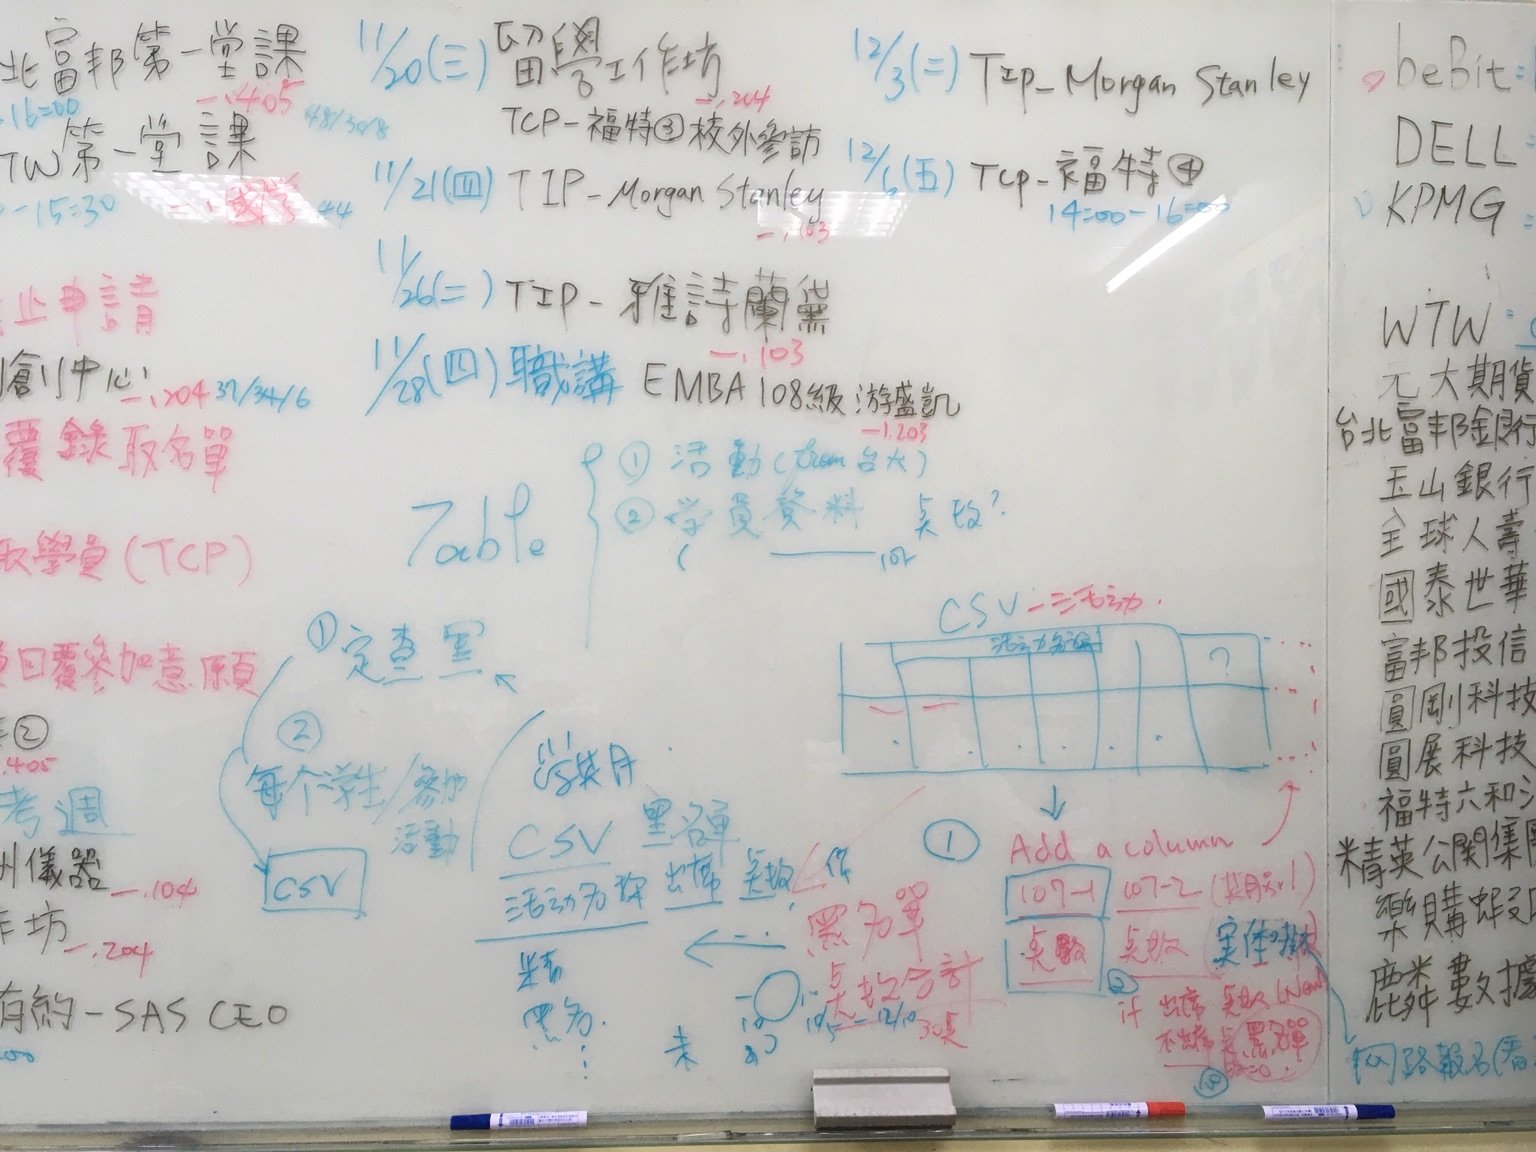 北富邦第一堂課
-16=00
一.405
48/30/8
TW第一堂課
-15=30
44
止申請
創中心
一.204 37/34/6
覆錄取名單
取學員(TCP)
日覆參加意願
②
.405
考週
洲儀器
一.104
作坊
一.204
有約-SAS CEO
11/20(三) 留學工作坊
一.204
TCP-福特③校外參訪
11/21(四) TIP-Morgan Stanley
一.103
11/26(二) TIP-雅詩蘭黛
一.103
11/28(四) 職講 EMBA 108級 游盛凱
一.203
12/3(二) TIP-Morgan Stanley
12/6(五) TCP-福特④
14=00-16=00
Table
① 活動(from 台大)
② 学員資料
点数?
① 定查黑
② 每个学生/參加
活動
CSV
CSV 黑名單
活动名称 出席 点数
黑名.
未
CSV-活动.
活动名稱
?
① Add a column
107-1 107-2
点數 点数
②
if 出席 点数(New)
不出席 点 黑名單
黑名單
点数合計
30点
beBit
DELL
KPMG
WTW
元大期貨
台北富邦銀行
玉山銀行
全球人壽
國泰世華
富邦投信
圓剛科技
圓展科技
福特六和
精英公關集團
樂購蝦
麟數據
网路報名(看